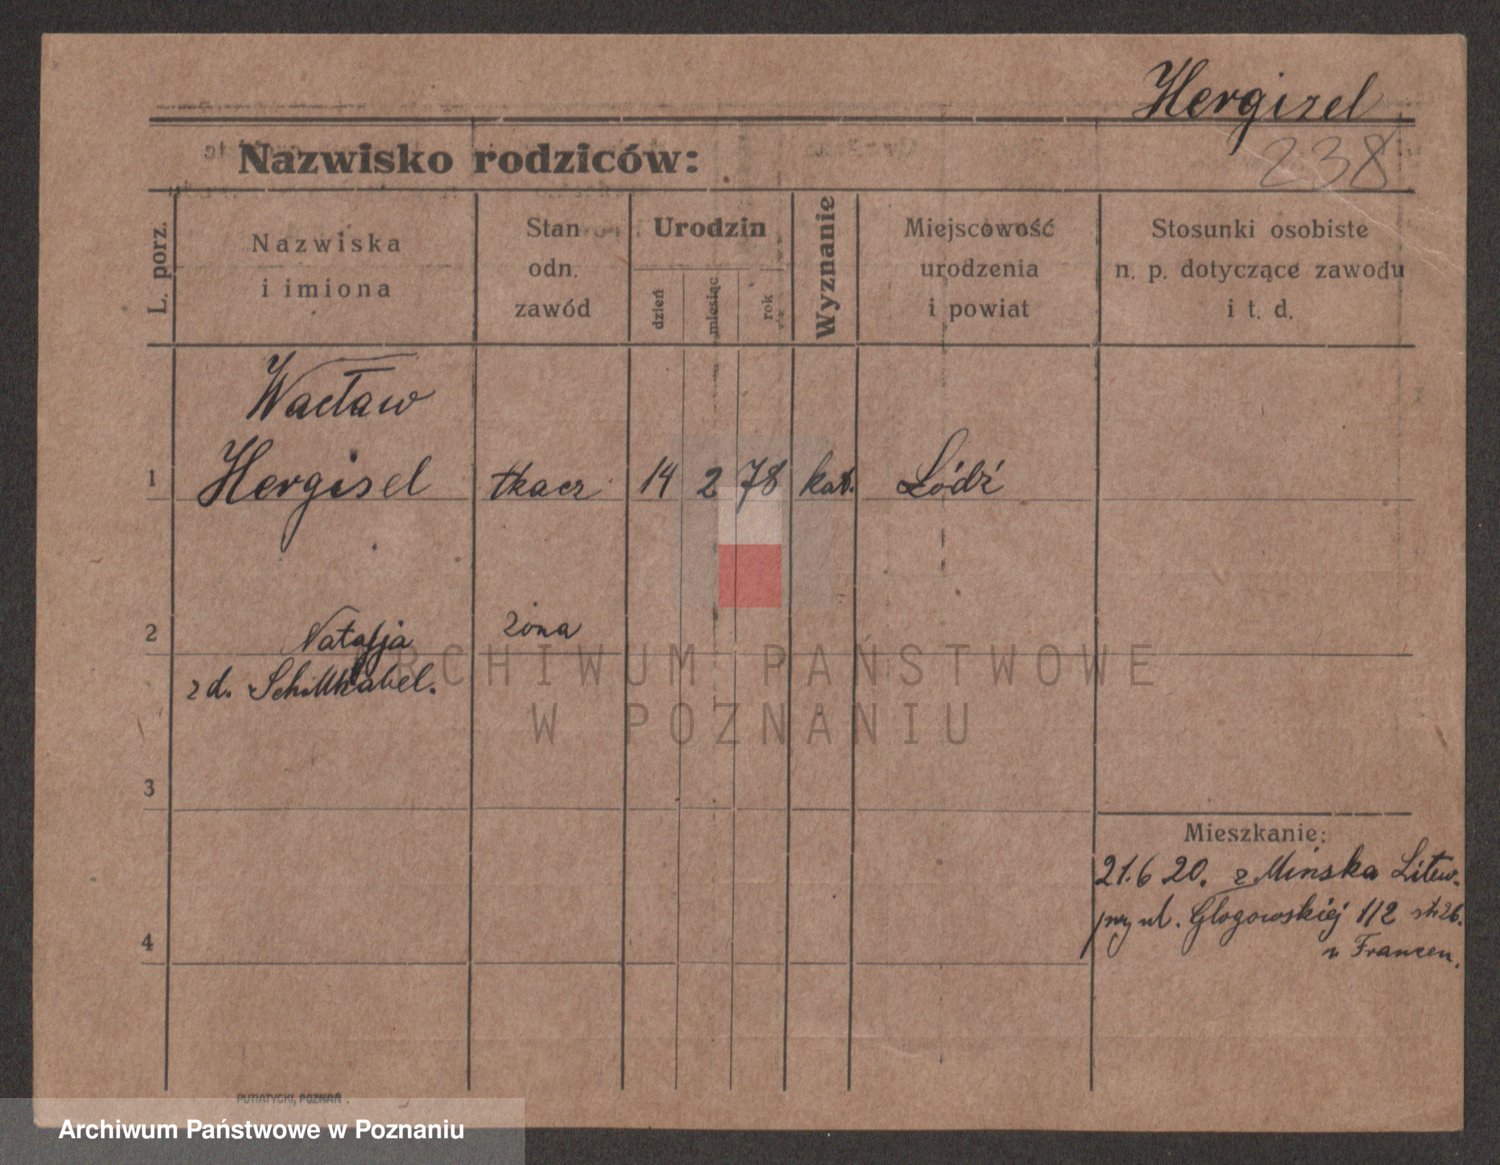 Hergisel
238
Nazwisko rodziców:
L. porz.
Nazwiska
i imiona
Stan
odn.
zawód
Urodzin
dzień
miesiąc
rok
Wyznanie
Miejscowość
urodzenia
i powiat
Stosunki osobiste
n. p. dotyczące zawodu
i t. d.
Wacław
1 Hergisel tkacz 14 2 78 kat. Łódź
2 Natalja żona
z d.
3
Mieszkanie:
21.6 20. z Mińska Litew.
przy ul. Głogowskiej 112
4
PUTIATYCKI, POZNAŃ.
ARCHIWUM PAŃSTWOWE
W POZNANIU
Archiwum Państwowe w Poznaniu